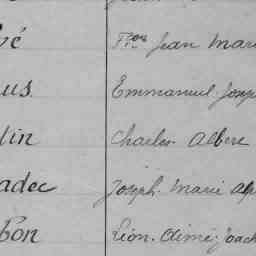 é Fçois Jean Mari
us Emmanuel. Josep
tin Charles. Albert
adec Joseph. Marie Alp
bon Léon. Aimé. Joach